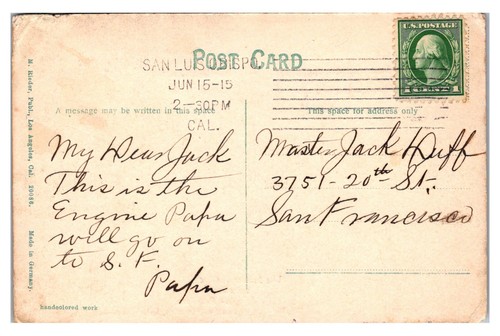 POST CARD
SAN LUIS OBISPO
JUN 15-15
2-30PM
CAL.
U.S. POSTAGE
1 CENT 1
A message may be written in this space
This space for address only
My Dear Jack
This is the
Engine Papa
will go on
to S.F.
Papa
Master Jack Huff
3751-20th St.
San Francisco
M. Rieder, Publ., Los Angeles, Cal.
Made in Germany.
handcolored work